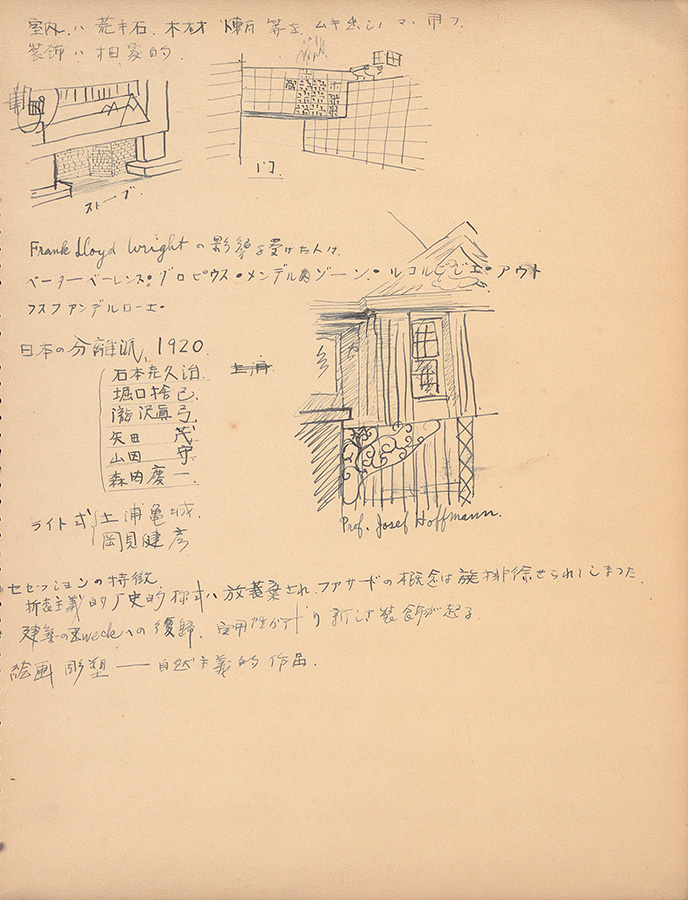 室内ハ荒キ石、木材、煉瓦等をムキ出シノマヽ用フ.
装飾ハ抽象的.
ストーブ.
Frank Lloyd Wright の影響を受けた人は.
ペーターベーレンス・グロピウス・メンデルゾーン・ルコルビジエ・アウト
フスファンデルローエ・
日本の分離派、1920.
石本喜久治.
堀口捨己.
瀧沢眞弓.
矢田 茂
山田 守
森田慶一.
ライト式 土浦亀城.
岡見健彦
Prof. Josef Hoffmann.
セセッションの特徴.
放棄され、ファサードの概念は排除せられてしまつた.
建築のZweckへの復帰、実用性がアリ新しき装飾が起る
絵画 彫塑 ── 自然主義的作品.